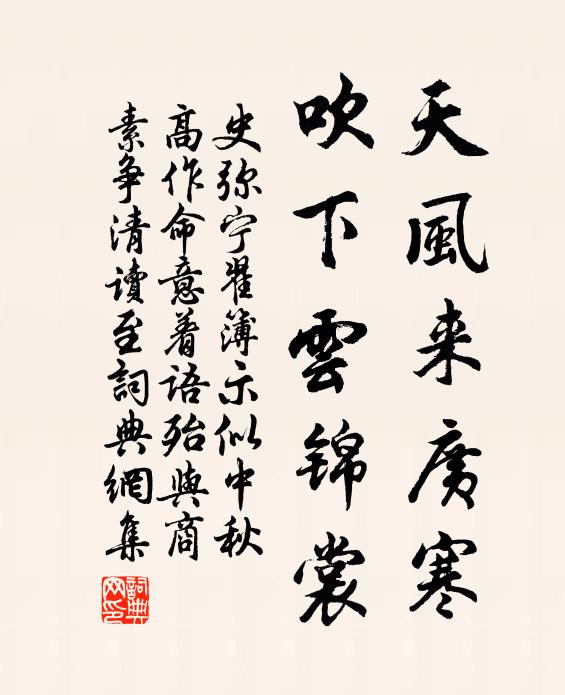 天風来廣寒
吹下雲锦裳
史弥宁翟簿示似中秋
高作命意着语殆與商
素争清讀至詞典網集
詞典网印